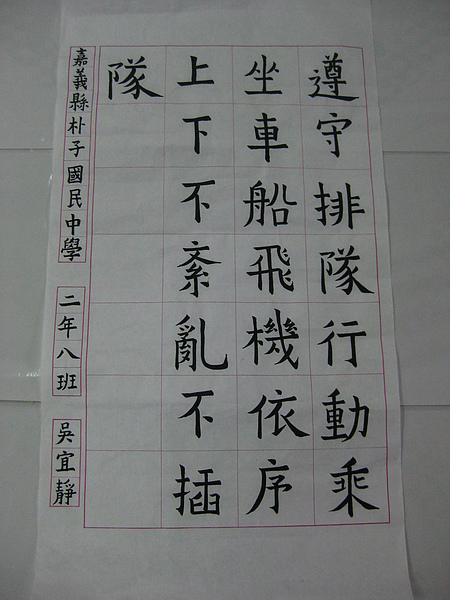 遵守排隊行動乘
坐車船飛機依序
上下不紊亂不插
隊
嘉義縣朴子國民中學 二年八班 吳宜靜